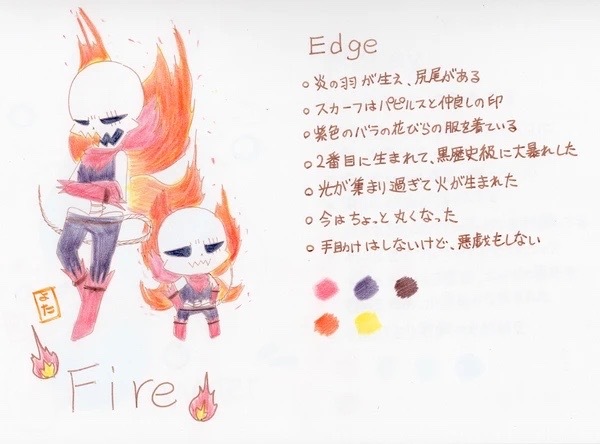 Edge
○炎の羽が生え、尻尾がある
○スカーフはパピルスと仲良しの印
○紫色のバラの花びらの服を着ている
○2番目に生まれて、黒歴史級に大暴れした
○光が集まり過ぎて火が生まれた
○今はちょっと丸くなった
○手助けはしないけど、悪戯もしない
よた
Fire